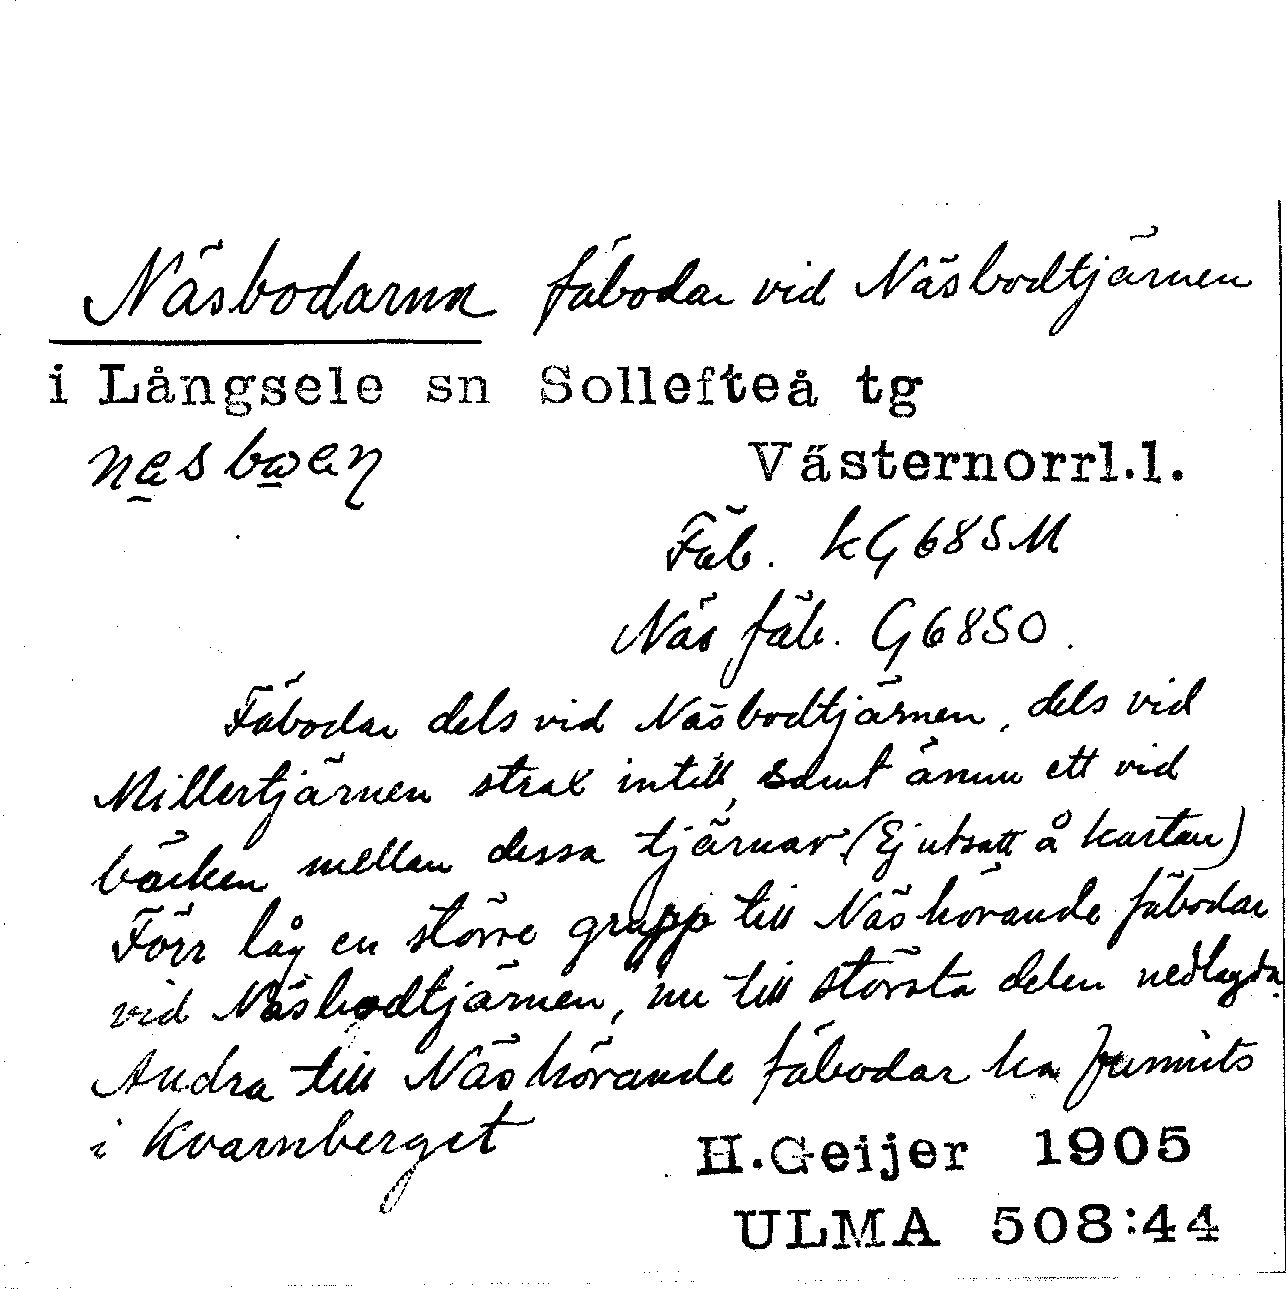 Näsbodarna fäbodar vid Näsbodtjärnen
i Långsele sn Sollefteå tg
Västernorrl.l.
Fäb. kG68SM
Näs fäb. G68SO.
Fäbodar dels vid Näsbodtjärnen, dels vid
Millertjärnen strax intill, samt ännu ett vid
bäcken mellan dessa tjärnar (Ej utsatt å kartan)
Förr låg en större grupp till Näs hörande fäbodar
vid Näsbodtjärnen, nu till största delen nedlagda.
Andra till Näs hörande fäbodar ha funnits
i Kvarnberget
H.Geijer 1905
ULMA 508:44